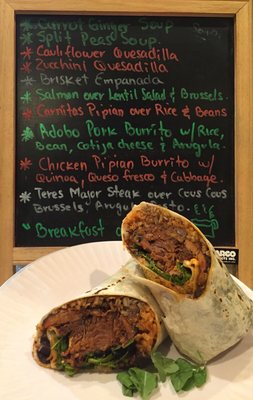 * Carrot Ginger Soup
* Split Peas Soup
* Cauliflower Quesadilla
* Zucchini Quesadilla
* Brisket Empanada
* Salmon over Lentil Salad & Brussels.
* Carnitas Pipian over Rice & Beans
* Adobo Pork Burrito w/ Rice,
Bean, cotija cheese & Arugula.
* Chicken Pipian Burrito w/
Quinoa, Queso fresco & Cabbage.
* Teres Major Steak over Cous Cous
Brussels, Arugula
"Breakfast